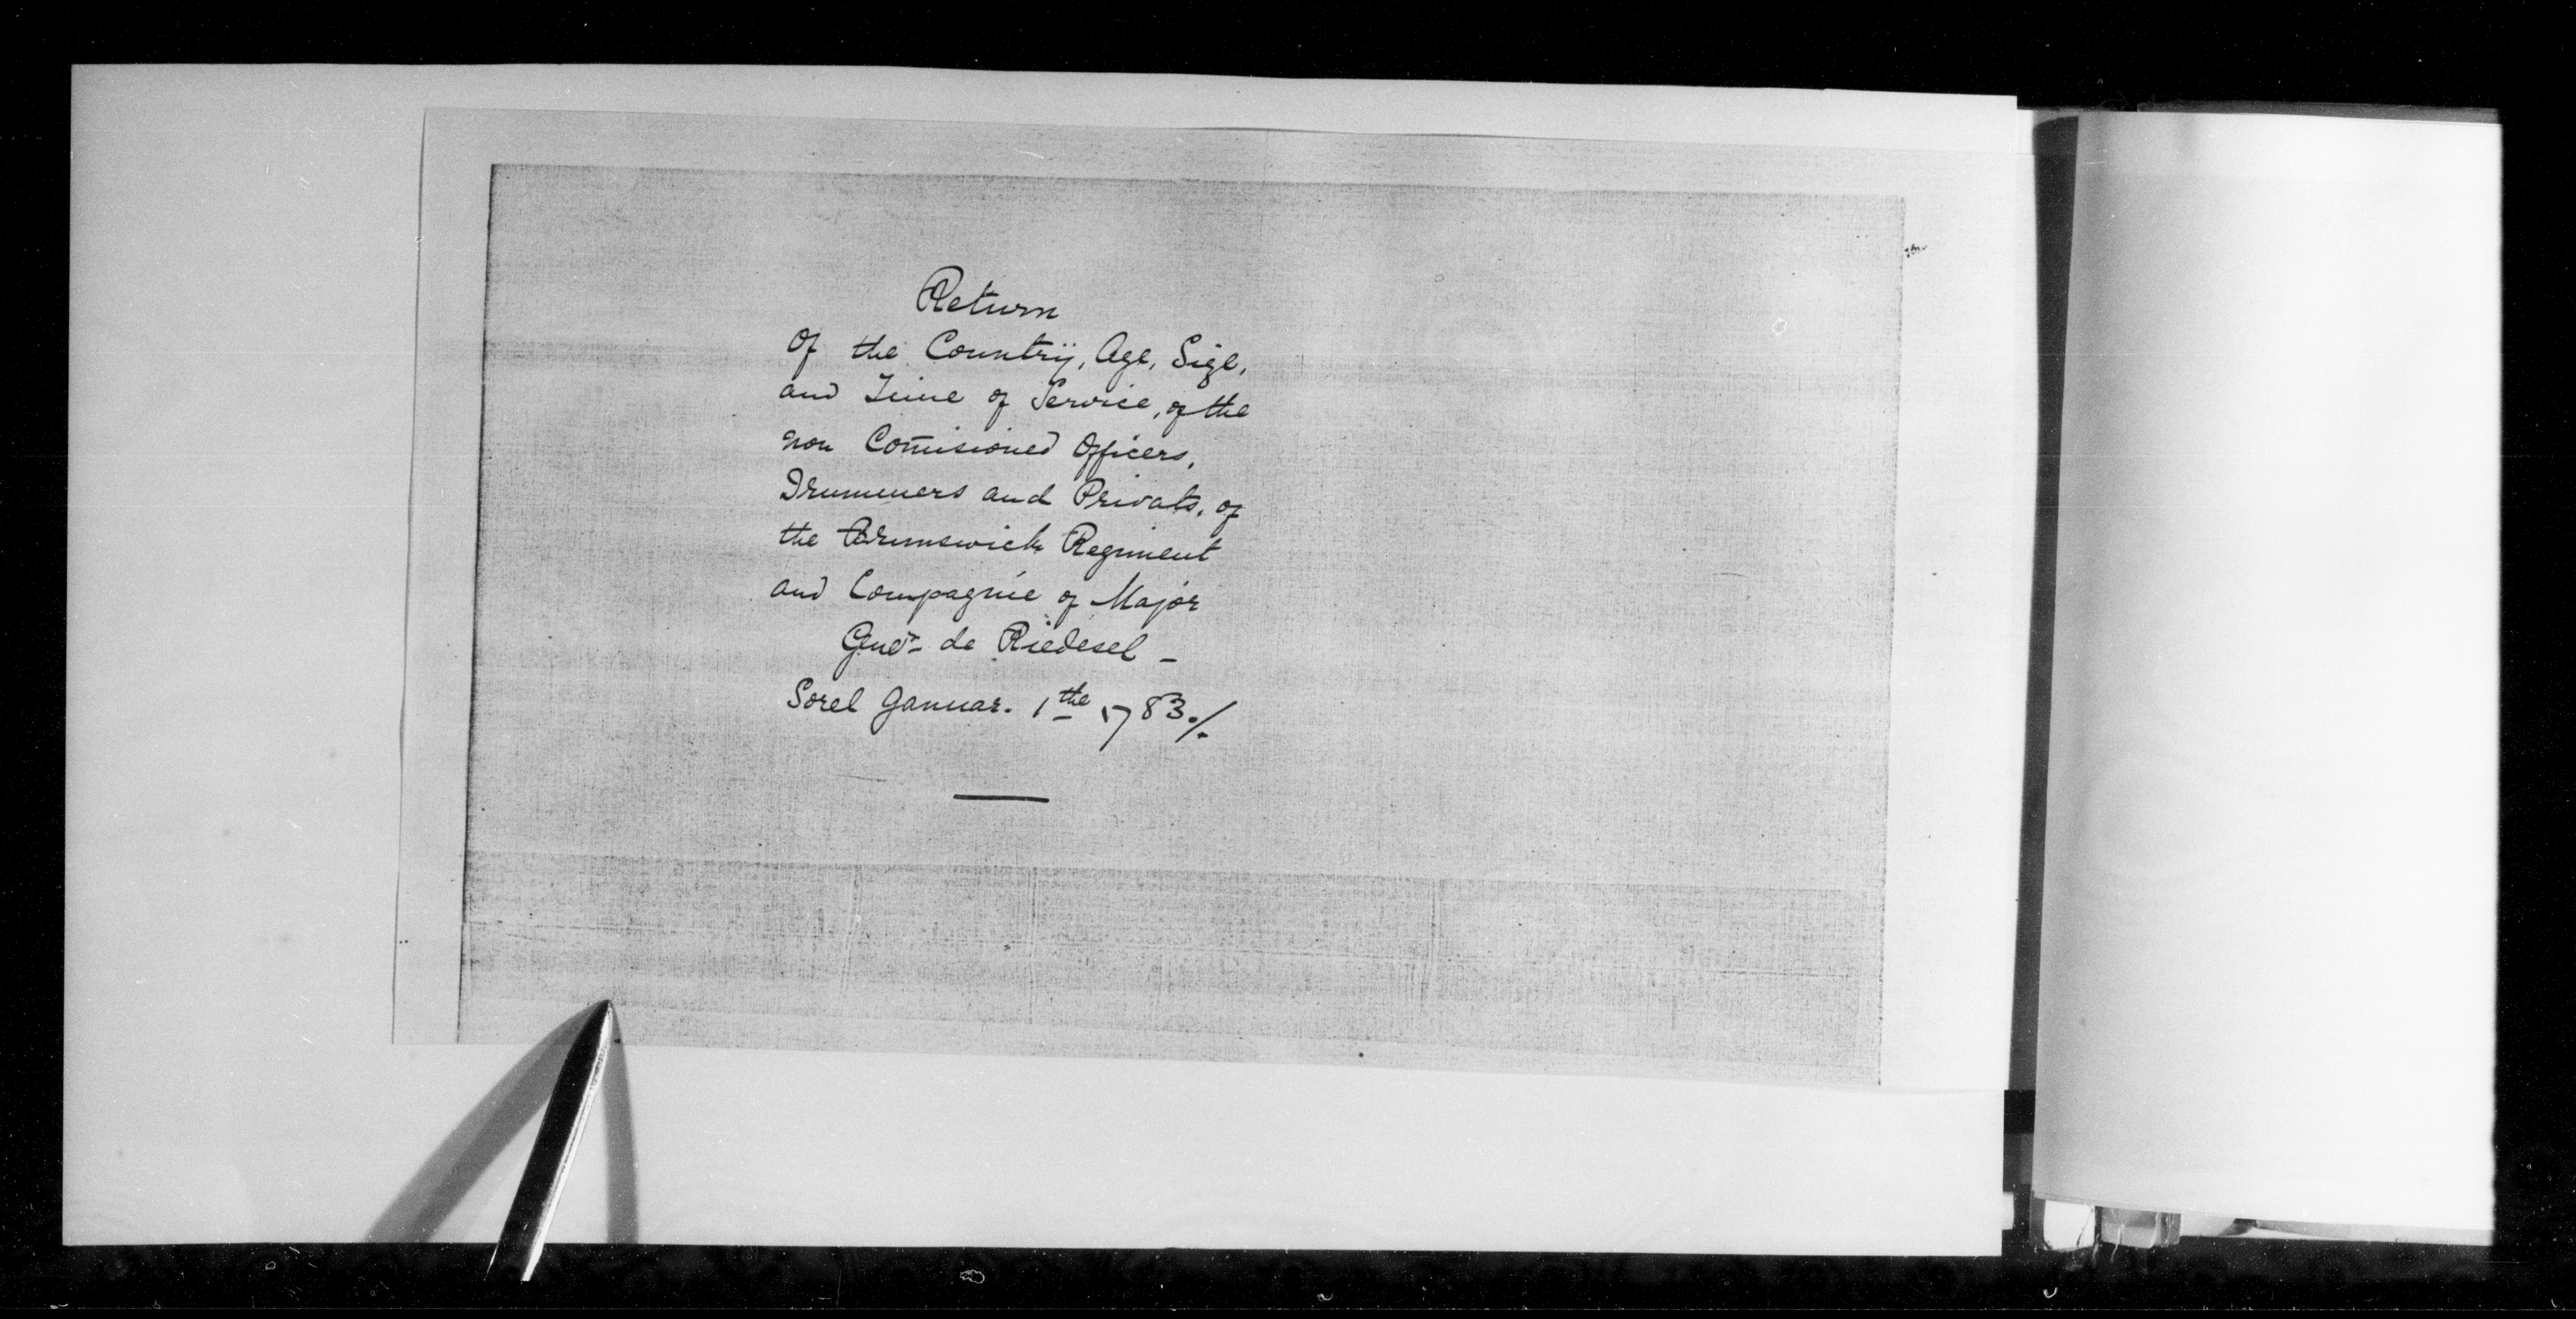 Return
Of the Countrij, Age, Size,
and Time of Service, of the
non Com̄isioned Officers,
Drummers and Privats, of
the Brunswick Regiment
and Compagnie of Major
Genˡ- de Riedesel -
Sorel Januar. 1the 1783./.